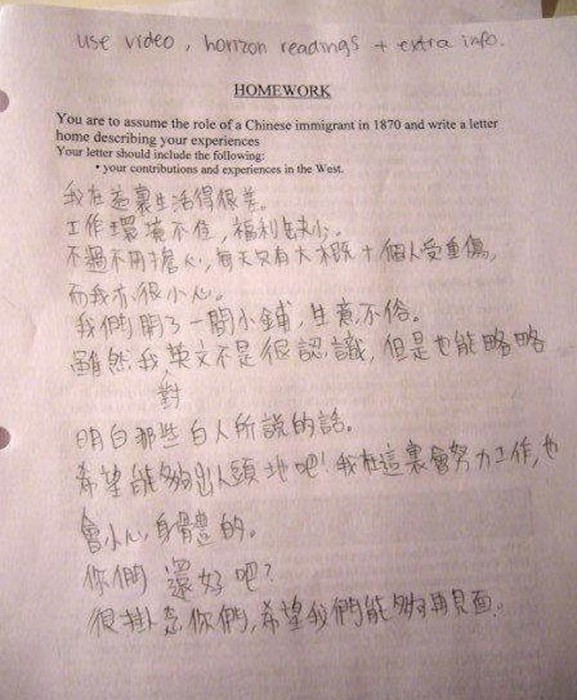 use video, horizon readings + extra info.
HOMEWORK
You are to assume the role of a Chinese immigrant in 1870 and write a letter
home describing your experiences
Your letter should include the following:
• your contributions and experiences in the West.
我在這裏生活得很差。
工作環境不佳,福利缺小。
不過不用擔心,每天只有大概十個人受重傷,
而我亦很小心。
我們開了一間小鋪,生意不俗。
雖然我英文不是很認識,但是也能略略
對
明白那些白人所說的話。
希望能夠出人頭地吧!我在這裏會努力工作,也
會小心身體的。
你們還好吧?
很掛念你們,希望我們能夠再見面。